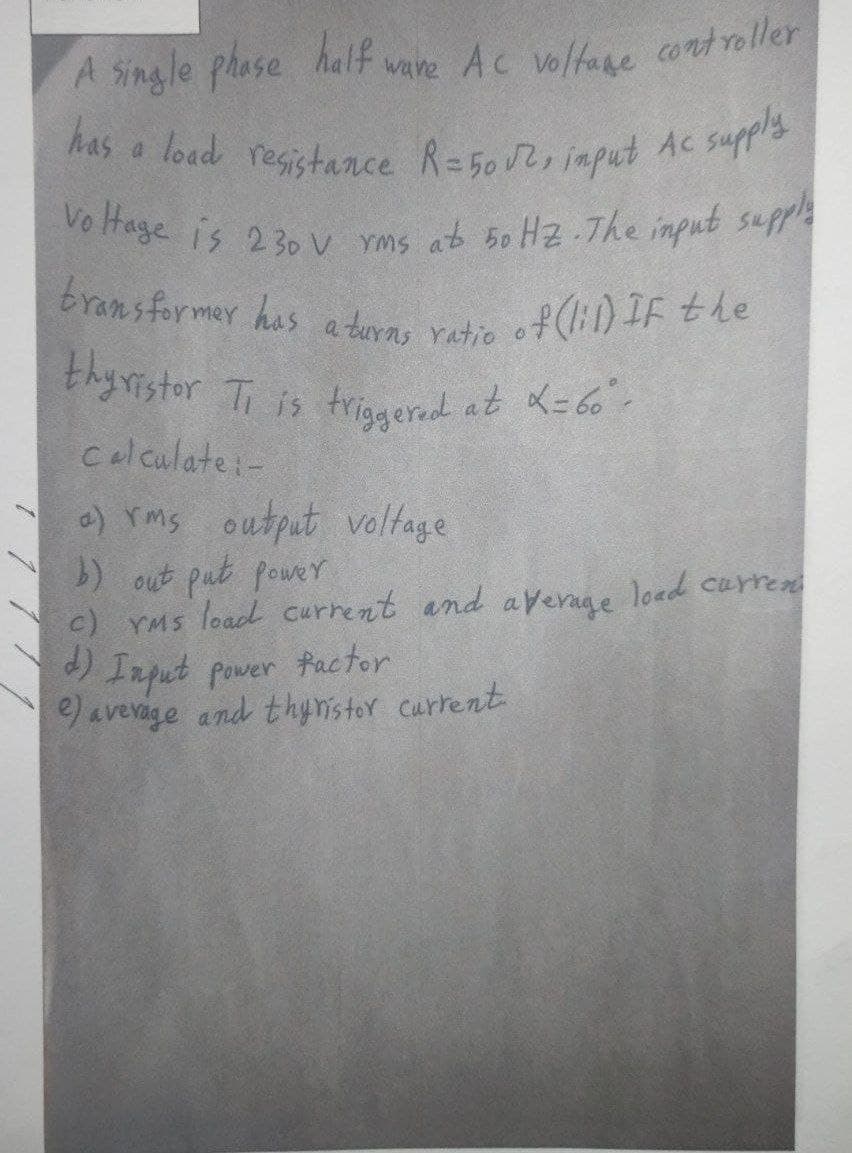 A single phase half wave AC voltage controller
has a load resistance R=50Ω, input AC supply
Voltage is 230V rms at 50HZ. The input supply
transformer has a turns ratio of (1:1) IF the
thyristor T1 is triggered at α=60°.
Calculate:-
a) rms output voltage
b) out put power
c) rms load current and average load curren
d) Input power factor
e) average and thyristor current